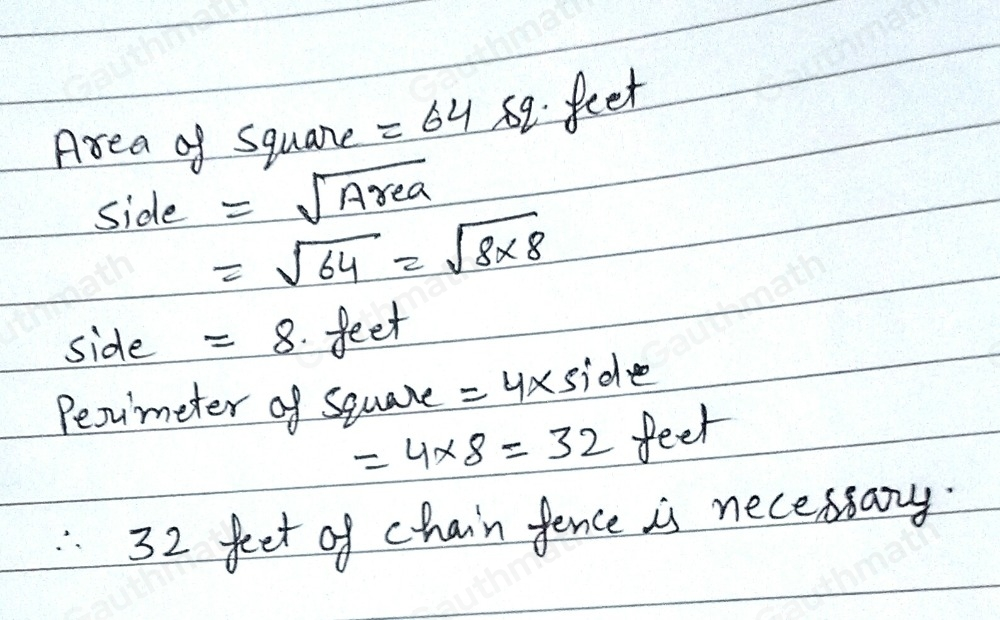 Area of square = 64 sq. feet
side = √Area
= √64 = √8×8
side = 8. feet
Perimeter of square = 4×side
= 4×8 = 32 feet
∴ 32 feet of chain fence is necessary.
Gauthmath